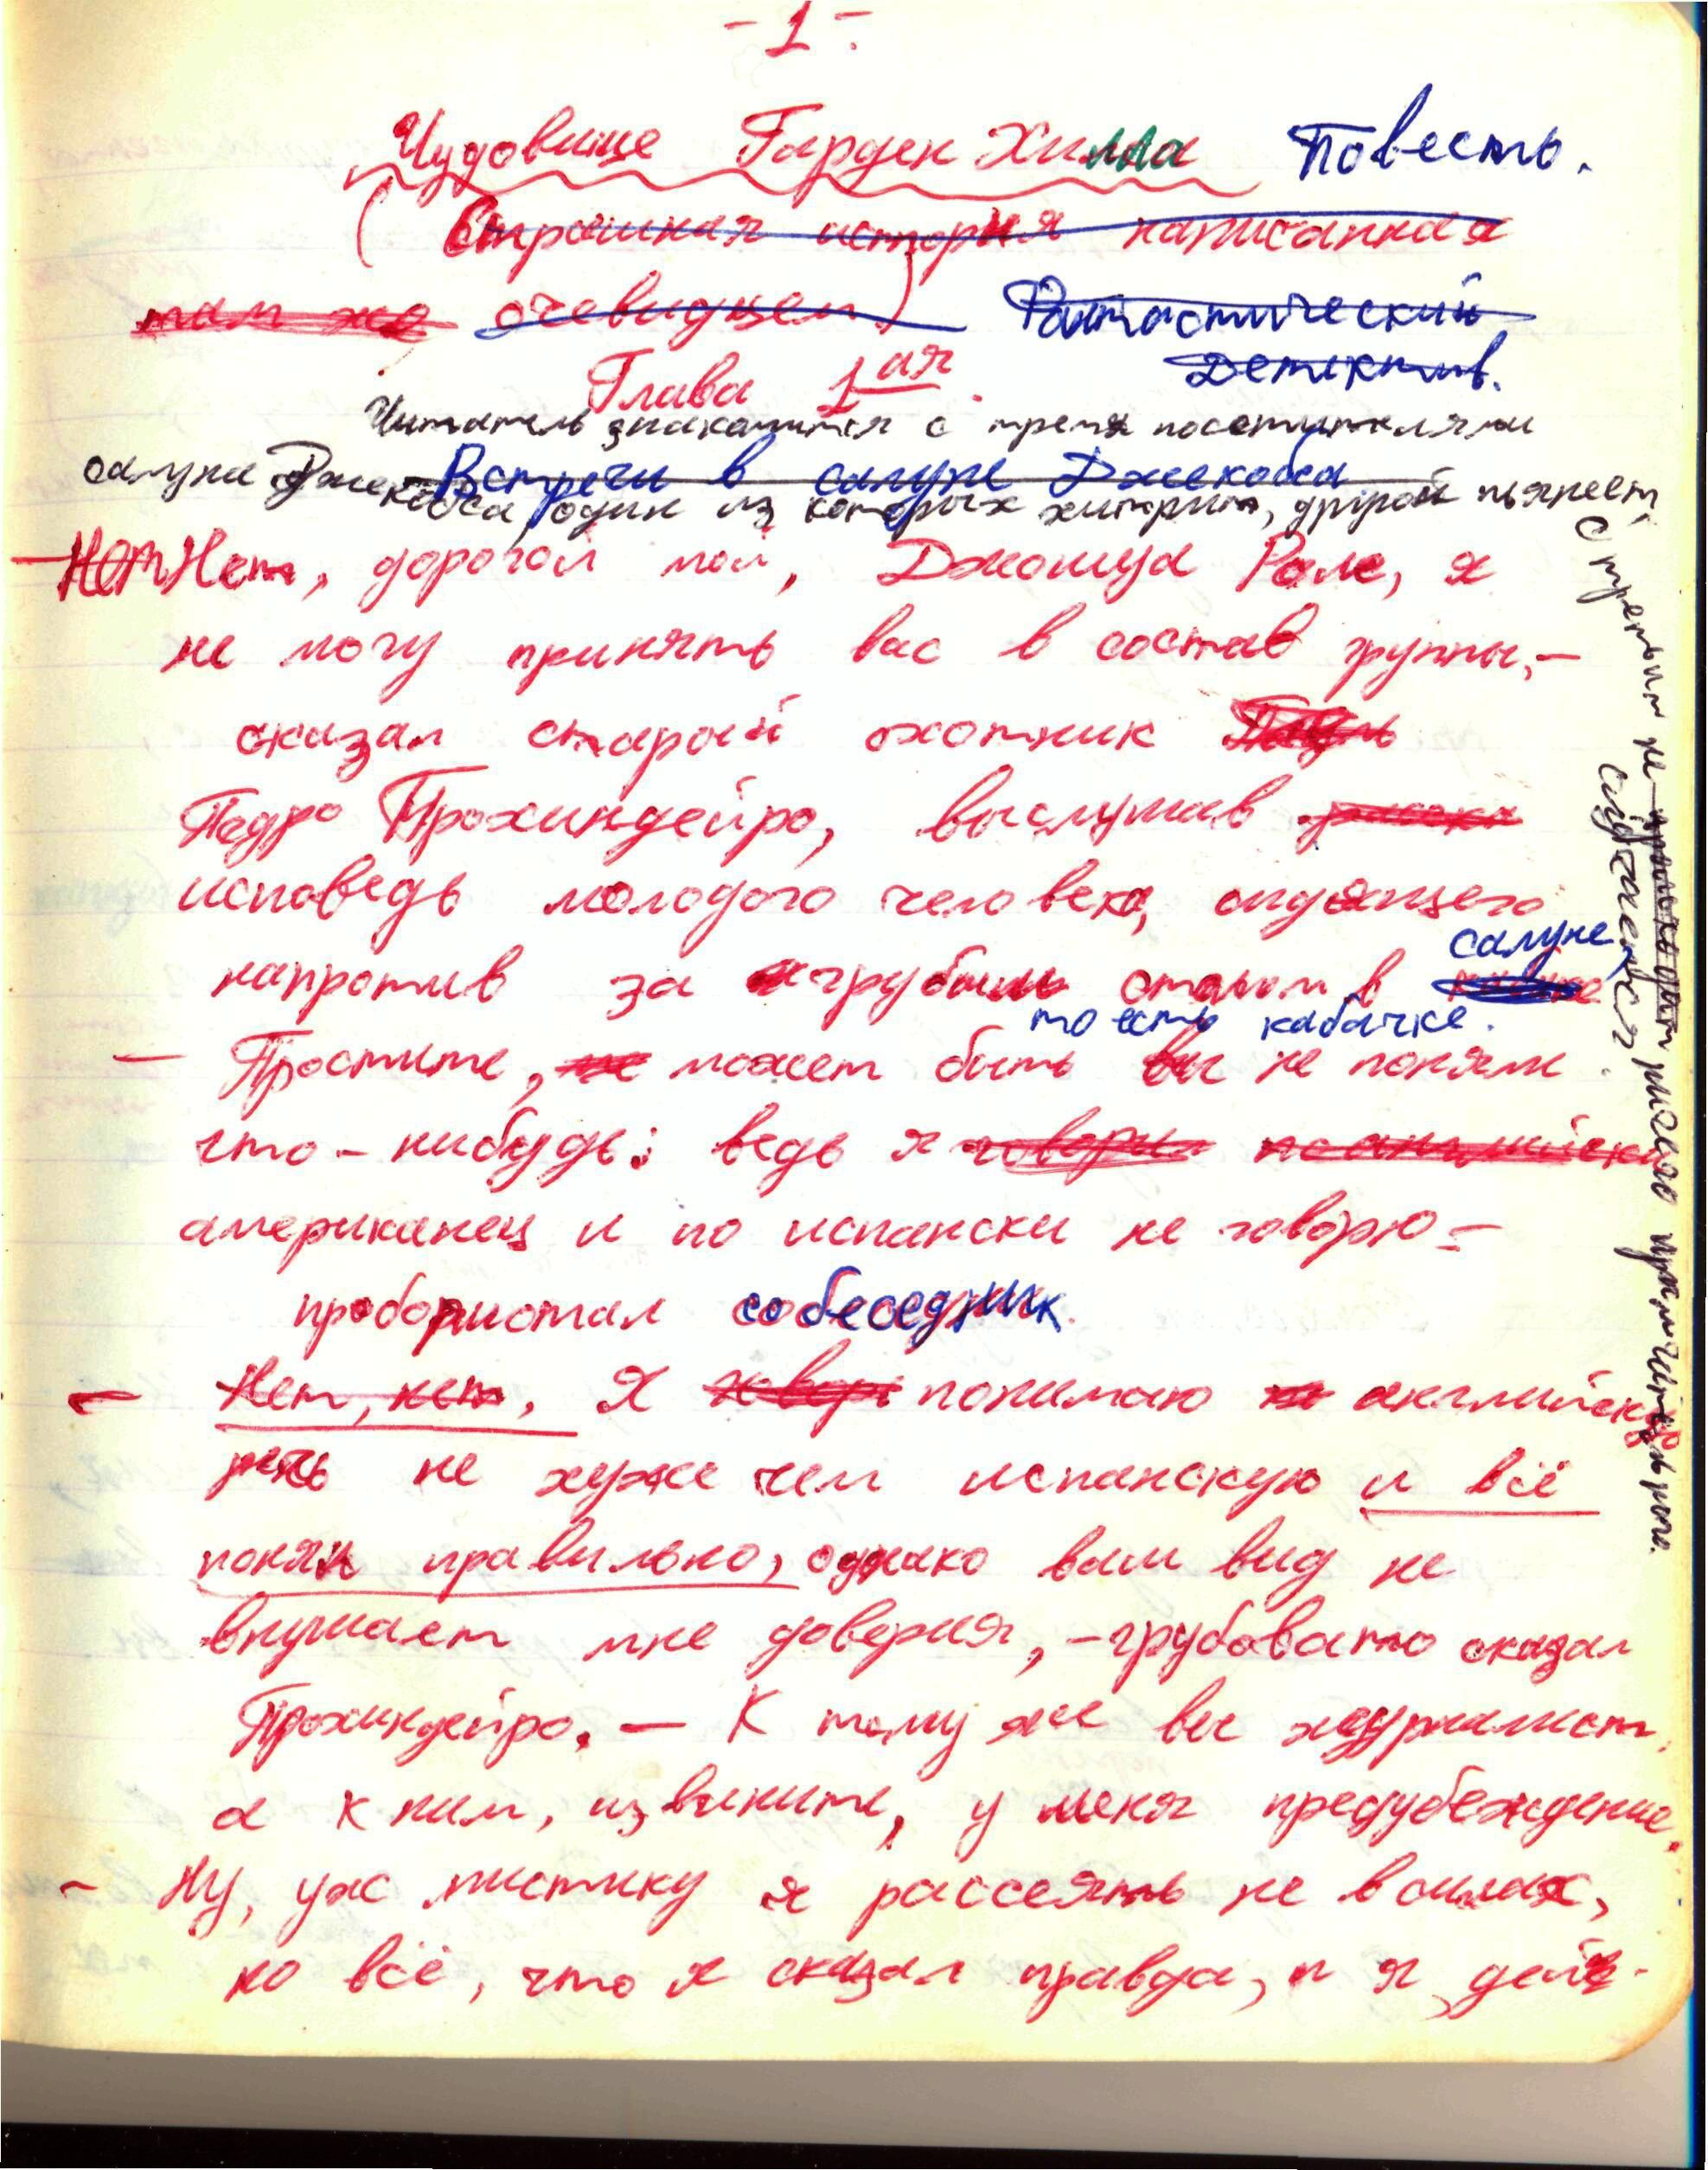 - 1 -
Чудовище Гарден Хилла Повесть.
(Страшная история написанная
там же очевидцем) Фантастический
Детектив.
Глава 1ая
Читатель знакомится с тремя посетителями
салуна Джекобса, один из которых хитрит, другой пьянеет,
Встречи в салуне Джекобса
с третьим не происходит ничего примечательного.
случается
— Нет Нет, дорогой мой, Джошуа Роле, я
не могу принять вас в состав группы, —
сказал старый охотник
Педро Прохиндейро, выслушав
исповедь молодого человека, сидящего
напротив за грубым столом в салуне,
то есть кабачке.
— Простите, не может быть вы не поняли
что-нибудь: ведь я говорю по английски
американец и по испански не говорю —
пробормотал собеседник.
— Нет, нет, Я говор понимаю по английскую
речь не хуже чем испанскую и всё
понял правильно, однако ваш вид не
внушает мне доверия, — грубовато сказал
Прохиндейро. — К тому же вы журналист,
а к ним, извините, у меня предубеждение.
- Ну, уж мистику я рассеять не в силах,
но всё, что я сказал правда, и я дей-